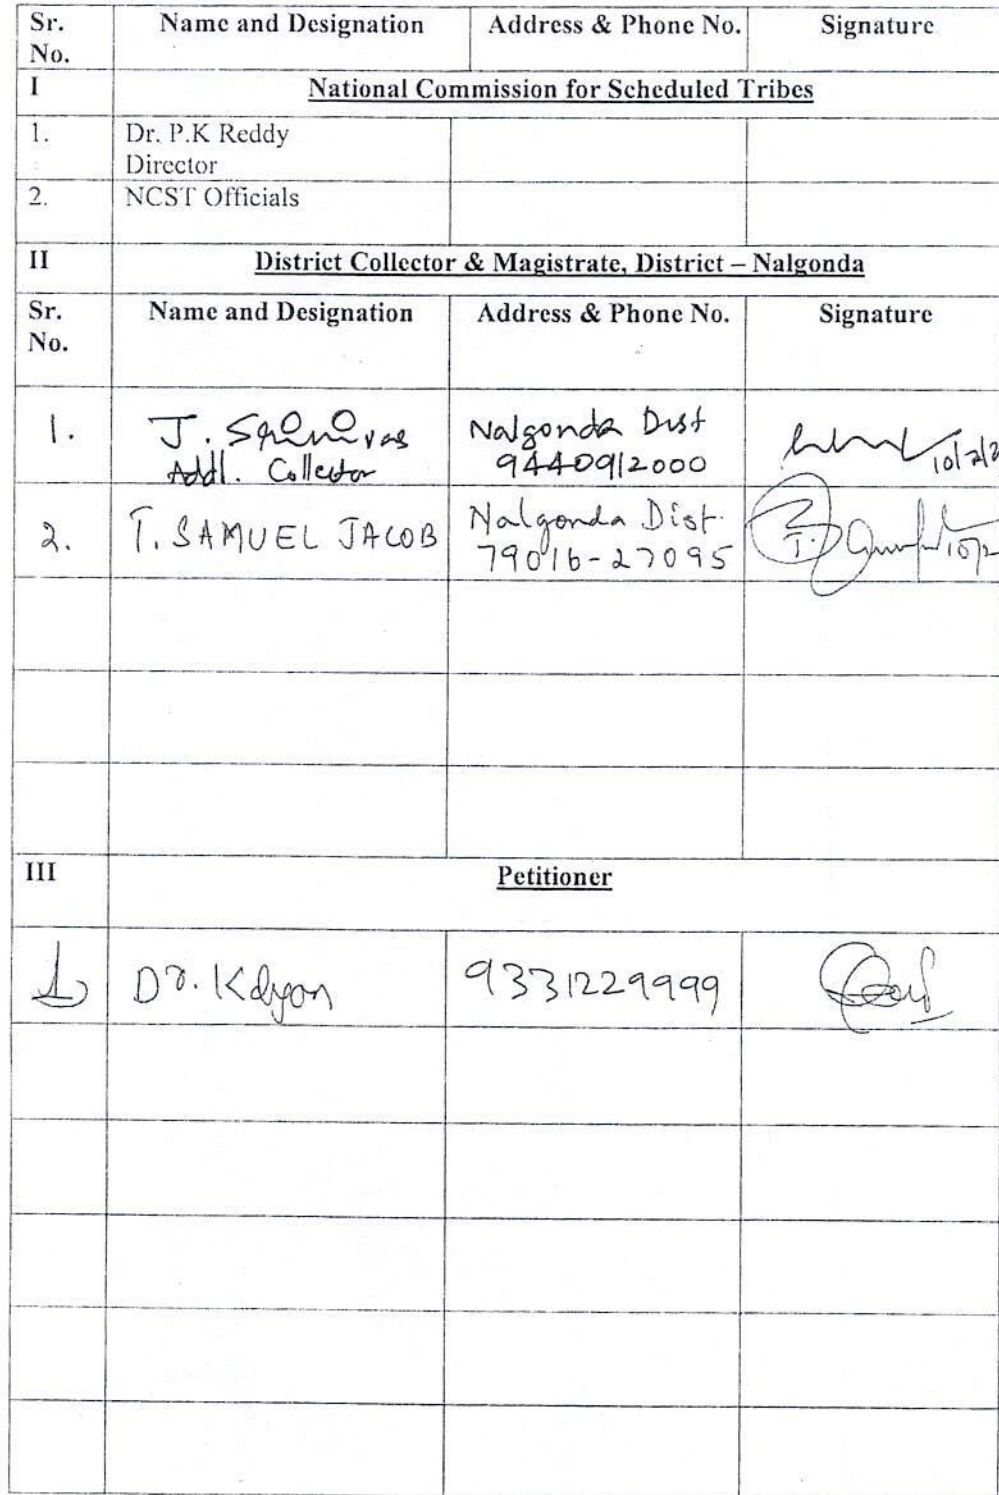 Sr. Name and Designation Address & Phone No. Signature
No.
I National Commission for Scheduled Tribes
1. Dr. P.K Reddy
Director
2. NCST Officials
II District Collector & Magistrate, District – Nalgonda
Sr. Name and Designation Address & Phone No. Signature
No.
1. J. Srinivas Nalgonda Dist
Addl. Collector 9440912000 10/2/2
2. T. SAMUEL JACOB Nalgonda Dist.
79016-27095 10/2
III Petitioner
1 Dr. Kalyan 9331229999